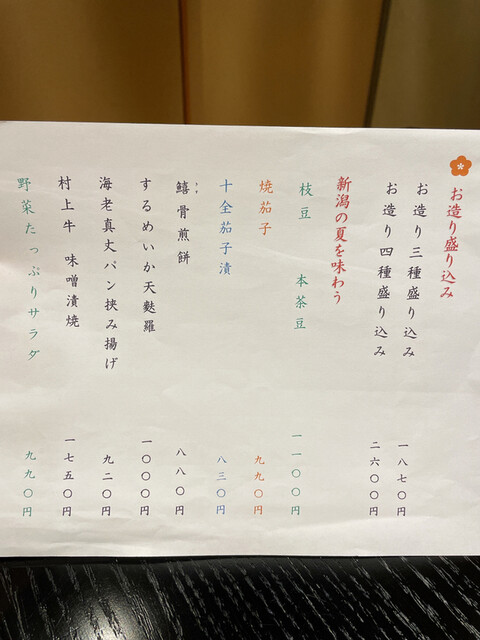 お造り盛り込み
お造り三種盛り込み 一八七〇円
お造り四種盛り込み 二六〇〇円
新潟の夏を味わう
枝豆 本茶豆 一一〇〇円
焼茄子 九九〇円
十全茄子漬 八三〇円
鱚骨煎餅 八八〇円
するめいか天麩羅 一〇〇〇円
海老真丈パン挟み揚げ 九二〇円
村上牛 味噌漬焼 一七五〇円
野菜たっぷりサラダ 九九〇円